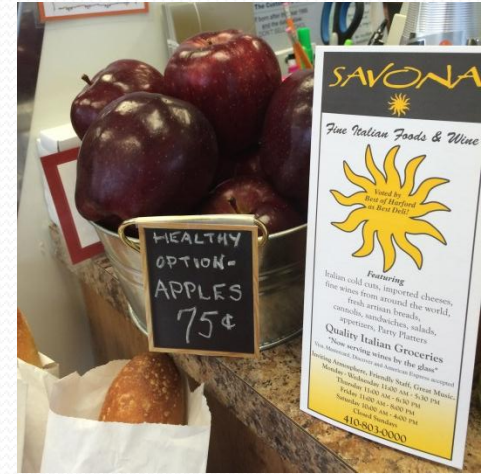 HEALTHY
OPTION-
APPLES
75¢
SAVONA
Fine Italian Foods & Wine
Voted by
Best of Harford
as Best Deli!
Featuring
Italian cold cuts, imported cheeses,
fine wines from around the world,
fresh artisan breads,
cannolis, sandwiches, salads,
appetizers, Party Platters
Quality Italian Groceries
"Now serving wines by the glass"
Visa, Mastercard, Discover and American Express accepted
Inviting Atmosphere, Friendly Staff, Great Music.
Monday - Wednesday 11:00 AM - 5:30 PM
Thursday 11:00 AM - 6:30 PM
Friday 11:00 AM - 8:00 PM
Saturday 10:00 AM - 4:00 PM
Closed Sundays
410-803-0000